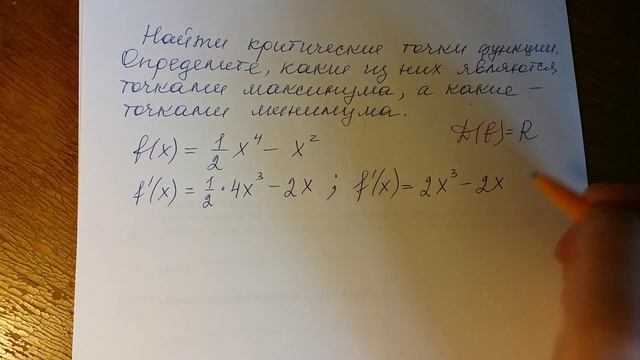 Найти критические точки функции.
Определите, какие из них являются
точками максимума, а какие –
точками минимума.
D(f) = R
f(x) = 1/2 x⁴ − x²
f'(x) = 1/2 · 4x³ − 2x ; f'(x) = 2x³ − 2x